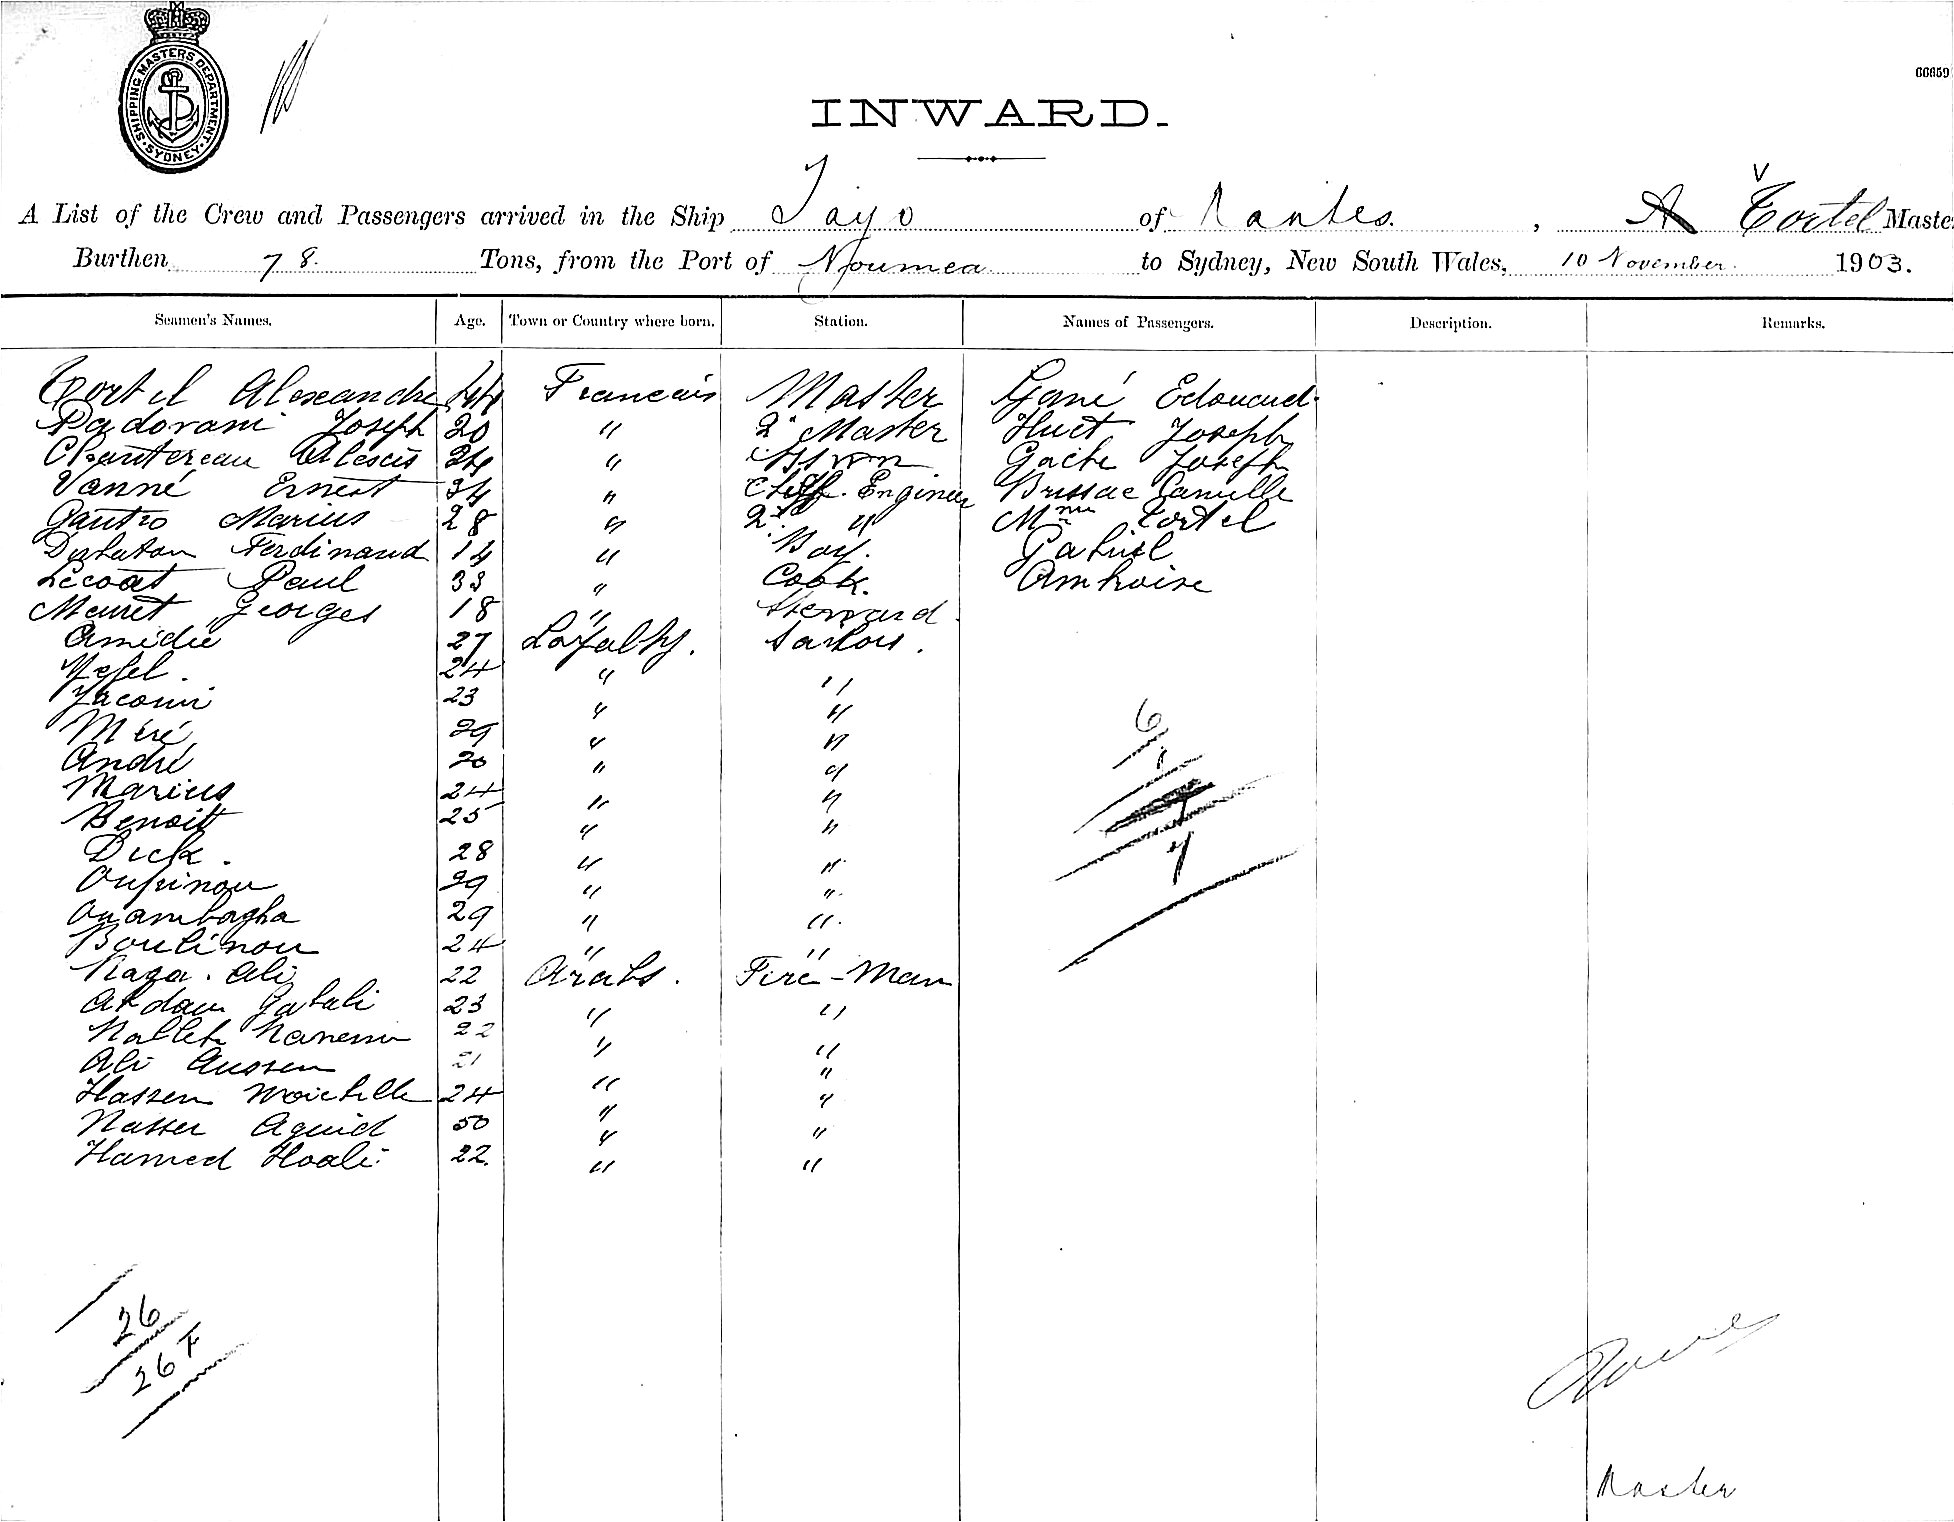 SHIPPING MASTERS DEPARTMENT
SYDNEY
00859
INWARD.
A List of the Crew and Passengers arrived in the Ship Tayo of Nantes. , A Tortel Master
Burthen 78. Tons, from the Port of Noumea to Sydney, New South Wales, 10 November. 1903.
Seamen's Names. Age. Town or Country where born. Station. Names of Passengers. Description. Remarks.
Tortel Alexandre 44 Francais Master Gané Edouard.
Padovani Joseph 20 " 2d Master Huet Joseph
Chantereau Alexis 24 " Gache Joseph
Vanné Ernest 34 " Chiff. Engineer Brissac Camille
Gautro Marius 28 " 2d " Mme Tortel
Ferdinand 14 " Boy. Gabriel
Lecoat Paul 33 " Cook. Ambroise
Meuret Georges 18 " Steward.
Amédie 27 Loyalty. Sailors.
24 " "
Yacomi 23 " "
Méré 29 " "
André 20 " "
Marius 24 " "
Benoitt 25 " "
Dick. 28 " "
Oupinou 29 " "
Ouambagha 29 " "
Boulinou 24 " "
Naga. Ali 22 Arabs. Fire-Man
Abdam Gabali 23 " "
Nalleb Nanem 22 " "
Ali Aussen 21 " "
Hassen 24 " "
Nasser Aguid 50 " "
Hamed Hoali. 22. " "
6
1
7
26
26 F
Master